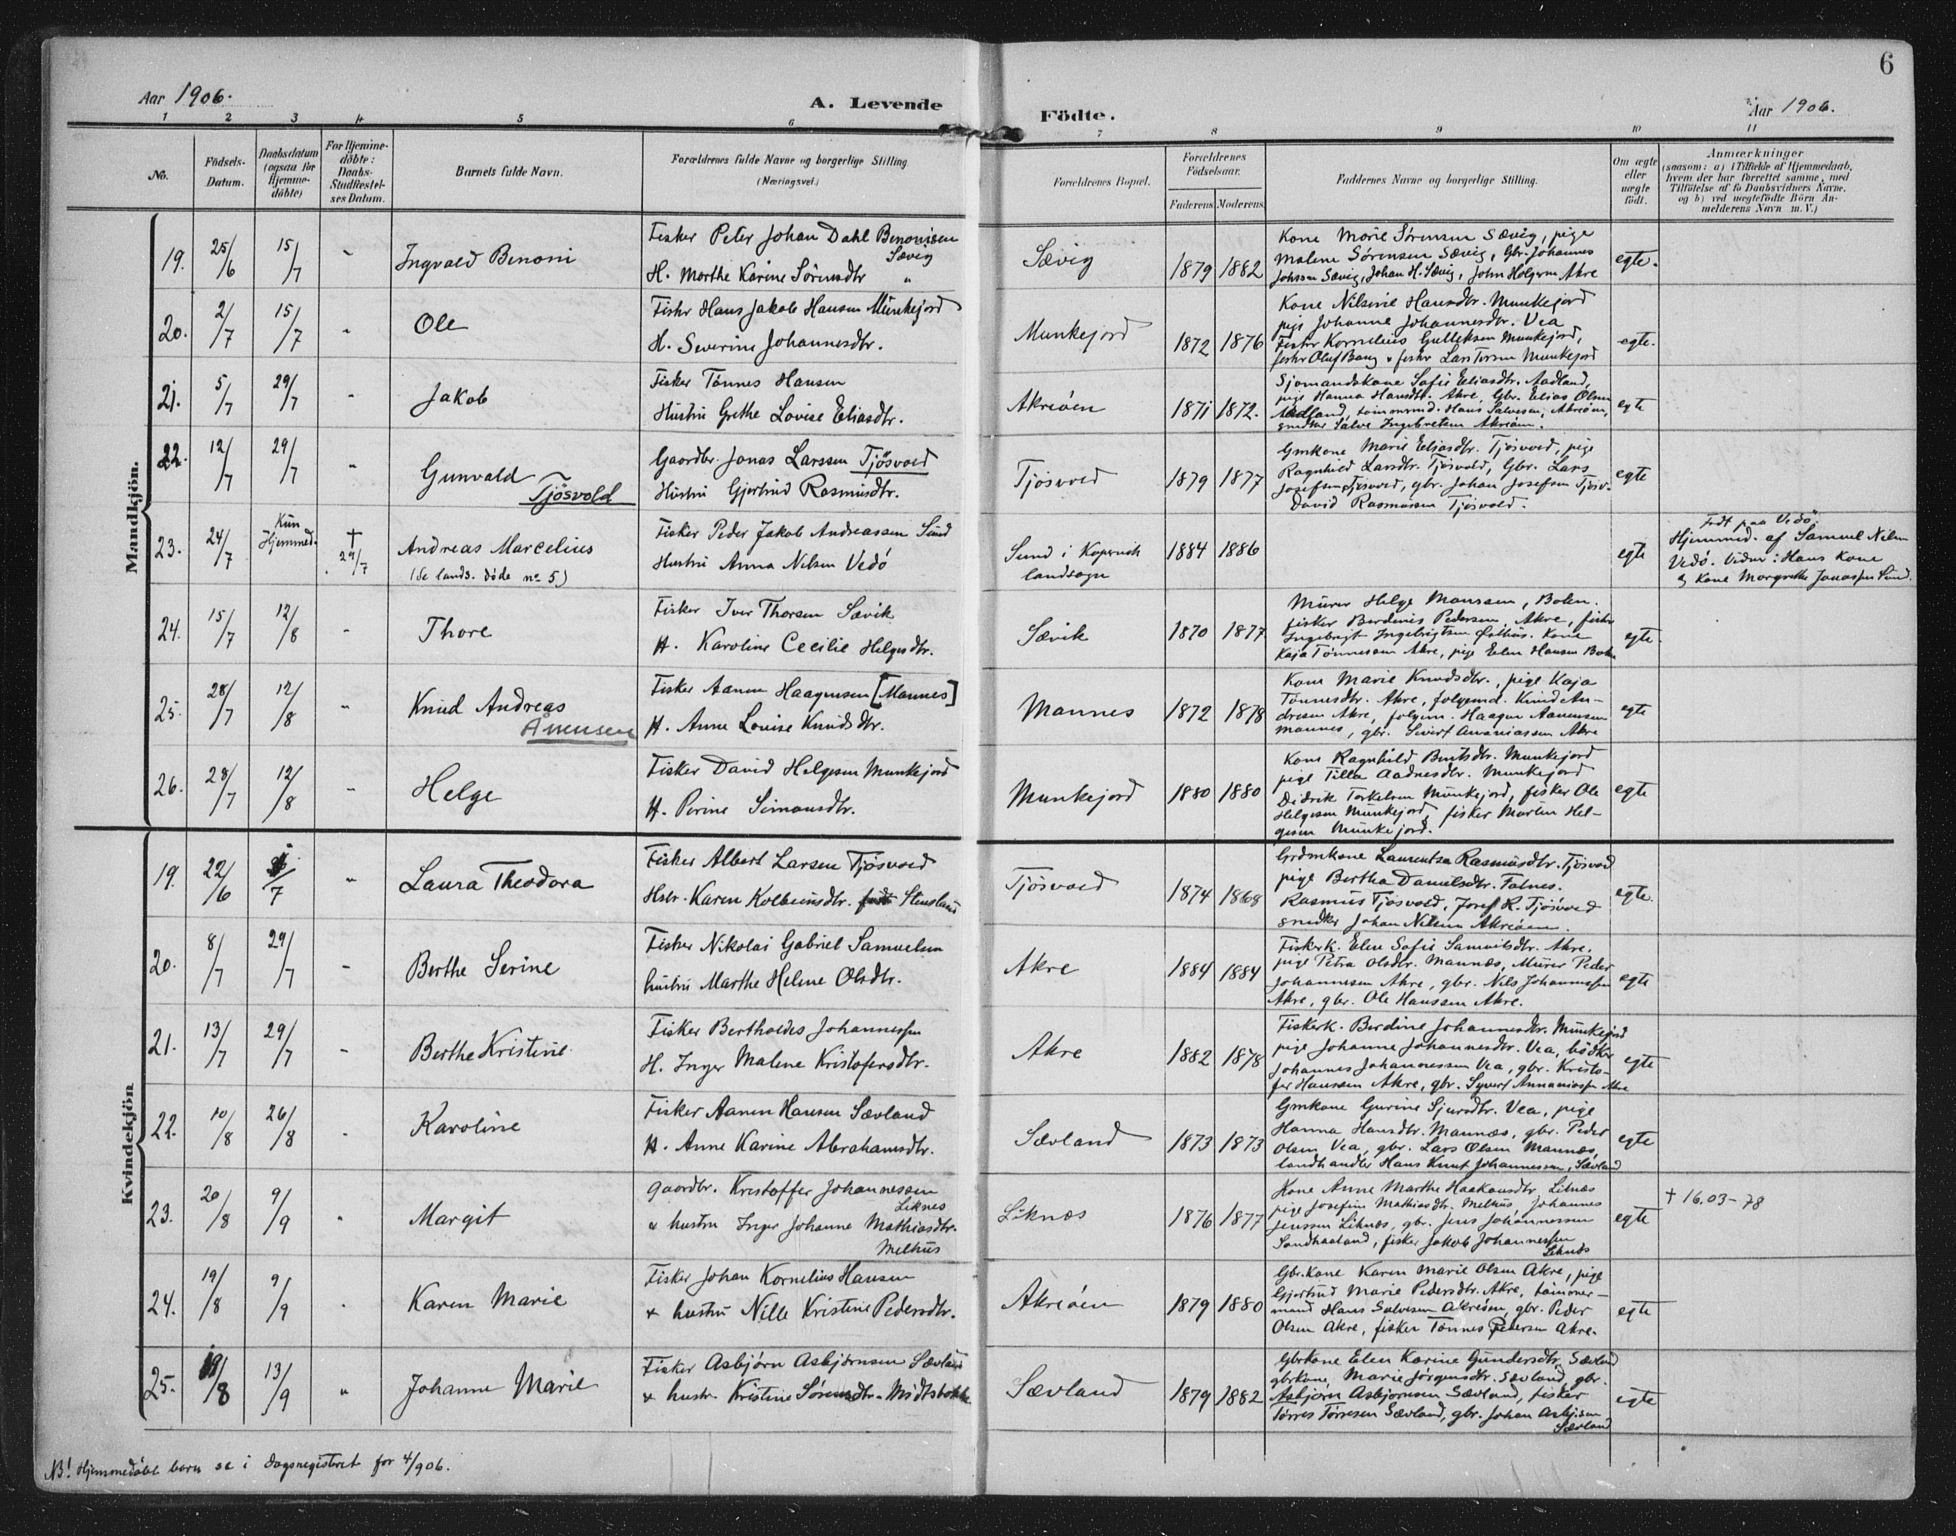 6
Aar 1906.
A. Levende
Födte.
Aar 1906.
1 2 3 4 5 6 7 8 9 10 11
No.
Födsels-Datum.
Daabsdatum (ogsaa for Hjemmedöbte)
For Hjemmedöbte: Daabs-Stadfæstelses Datum.
Barnets fulde Navn.
Forældrenes fulde Navne og borgerlige Stilling
(Næringsvei.)
Forældrenes Bopæl.
Forældrenes Födselsaar.
Faderens Moderens
Faddernes Navne og borgerlige Stilling.
Om ægte eller uægte födt.
Anmærkninger
(saasom: a) i Tilfælde af Hjemmedaab, hvem der har forrettet samme, med Tilföielse af to Daabsvidners Navne, og b) ved uægtefödte Börn Anmelderens Navn m. V.)
Mandkjön.
19. 25/6 15/7 " Ingvald Benoni
Fisker Peter Johan Dahl Benonisen Sævig
H. Marthe Karine Sörensdtr "
Sævig 1879 1882
Kone Marie Sørensen Sævig, pige
Malene Sørensen Sævig, Gbr. Johannes
Johssen Sævig, Johan H. Sævig, John Holgersen Akre
egte.
20. 2/7 15/7 " Ole
Fisker Hans Jakob Hansen Munkejord
H. Severine Johannesdtr.
Munkejord 1872 1876
Kone Nilsine Hansdtr. Munkejord
pige Johanne Johannesdtr. Vea
Fisker Kornelius Gulleksen Munkejord,
fisker Oluf Bang & fisker Lars Torsen Munkejord
egte.
21. 5/7 29/7 " Jakob
Fisker Tønnes Hansen
Hustru Grethe Lovise Eliasdtr.
Akreøen 1871 1872.
Sjomandskone Sofie Eliasdtr. Aadland,
pige Hanna Hansdtr. Akre, Gbr. Elias Olsen
Aadland, tømmermd. Hans Salvesen, Akreøen,
snedker Salve Ingebretsen Akreøen.
egte
22. 12/7 29/7 " Gunvald
Tjøsvold
Gaardbr. Jonas Larssen Tjøsvold
Hustru Gjertrud Rasmusdtr.
Tjøsvold 1879 1877
Gmkone Marie Eliasdtr. Tjøsvold, pige
Ragnhild Larsdtr. Tjøsvold, Gbr. Lars
Josefsen Tjøsvold, gbr. Johan Josefsen Tjøsv.
David Rasmussen Tjøsvold.
egte
23. 24/7 Kun Hjemmed. † 27/7 Andreas Marcelius
(Se lands. døde no 5)
Fisker Peder Jakob Andreassen Sund
Hustru Anna Nilsen Vedø
Sund i Kopervik landsogn 1884 1886
egte
Født paa Vedø.
Hjemmed. af Samuel Nilsen
Vedø. Vidner: Hans Kone
& Kone Margrethe Jonassen Sund.
24. 15/7 12/8 " Thore
Fisker Iver Thorsen Sævik
H. Karoline Cecilie Helgesdtr.
Sævik 1870 1877
Murer Helge Monssen, Boken.
fisker Berdinis Pedersen, Akre, fisker
Ingebrigt Ingebrigtsen Østhus. Kone
Kaja Tønnessen Akre, pige Elen Hansen Boken
egte.
25. 28/7 12/8 " Knud Andreas
Åmunsen
Fisker Aanen Haagensen [Mannes]
H. Anne Louise Knudsdtr.
Mannes 1872 1878
Kone Marie Knudsdtr., pige Kaja
Tønnesdtr. Akre, folgemd. Knud An-
dresen Akre, folgem. Haagen Aanensen
Mannes, gbr. Sivert Ananiassen Akre
egte
26. 28/7 12/8 " Helge
Fisker David Helgesen Munkejord
H. Perine Simonsdtr.
Munkejord 1880 1880
Kone Ragnhild Bentsdtr. Munkejord
pige Tilla Aadnesdtr. Munkejord
Didrik Torkelsen Munkejord, fisker Ole
Helgesen Munkejord, fisker Martin Hel-
gesen Munkejord.
egte
Kvindekjön
19. 22/6 /7 " Laura Theodora
Fisker Albert Larsen Tjøsvold
Hstr. Karen Kolbeinsdtr. født Stensland
Tjøsvold 1874 1868
Grdmkone Laurentsa Rasmusdtr. Tjøsvold
pige Bertha Danielsdtr. Falnes.
Rasmus Tjøsvold, Josef R. Tjøsvold
snedker Johan Nilsen Akreøen.
egte.
20. 8/7 29/7 " Berthe Serine
Fisker Nikolai Gabriel Samuelsen
hustru Marthe Helene Olsdtr.
Akre 1884 1884
Fiskerk. Elen Sofie Samuelsdtr. Akre.
pige Petra Olsdtr. Mannæs, Murer Peder
Johannesen Akre, gbr. Nils Johannessen
Akre, gbr. Ole Hanssen Akre.
egte
21. 13/7 29/7 " Berthe Kristine
Fisker Bertholdes Johannessen
H. Inger Malene Kristofersdtr.
Akre 1882 1878
Fiskerk. Berdine Johannesdtr. Munkejord
pige Johanne Johannesdtr. Vea, bødker
Johannes Johannessen Vea, gbr. Kristo-
fer Hanssen Akre, gbr. Syvert Annaniassen Akre
egte
22. 10/8 26/8 " Karoline
Fisker Aanen Hansen Sævland
H. Anne Karine Abrahamsdtr.
Sævland 1873 1873
Gmkone Gurine Sjursdtr. Vea, pige
Hanna Hansdtr. Mannæs, gbr. Peder
Olsen Vea, gbr. Lars Olsen Mannæs,
landhandler Hans Knut Johannessen, Sævland
egte
23. 20/8 9/9 " Margit
Gaardbr. Kristoffer Johannessen Liknes
& hustru Inger Johanne Mathiasdtr. Melhus
Liknæs 1876 1877
Kone Anne Marthe Haakonsdtr Liknæs
pige Josefine Mathiasdtr. Melhus, Johannes
Jenssen Liknæs, gbr. Jens Johannessen
Sandhaaland, fisker Jakob Johannessen
Liknæs
egte
† 16.03-78
24. 19/8 9/9 " Karen Marie
Fisker Johan Kornelius Hansen
& hustru Nille Kristine Pedersdtr.
Akreøen 1879 1880
Gbr.kone Karen Marie Olsen Akre, pige
Gjertrud Marie Pedersdtr. Akre, tømmer-
mand Hans Salvesen Akreøen, gbr. Peder
Olsen Akre, fisker Tønnes Pedersen Akre.
egte
25. 19/8 13/9 " Johanne Marie
Fisker Asbjørn Asbjørnsen Sævland
& hustr. Kristine Sørensdtr. Midtsbakke
Sævland 1879 1882
Gbrkone Elen Karine Gundersdtr Sævland
gbrkone, Marie Jørgensdtr. Sævland, gbr.
Asbjørn Asbjørnsen Sævland, fisker
Tørres Tørresen Sævland, gbr. Johan Asbjørnsen
Sævland
egte
NB! Hjemmedøbt barn se i dagsregisteret for 4/906.